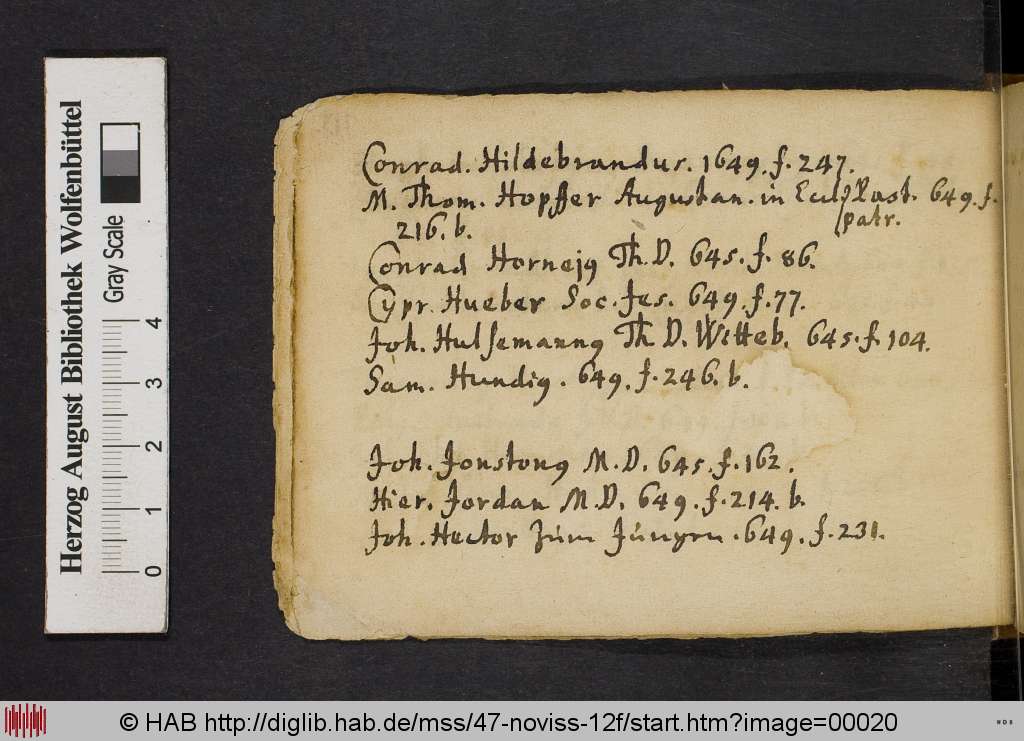 Conrad. Hildebrandus. 1649. f. 247.
M. Thom. Hopffer Augustan. in Eccl. Past. 649. f.
patr.
216. b.
Conrad Hornejꝰ Th. D. 645. f. 86.
Cypr. Hueber Soc. Jes. 649. f. 77.
Joh. Hulsemannꝰ Th. D. Witteb. 645. f. 104.
Sam. Hundiꝰ. 649. f. 246. b.
Joh. Jonstonꝰ M. D. 645. f. 162.
Hier. Jordan M. D. 649. f. 214. b.
Joh. Hector zum Jungen. 649. f. 231.
Herzog August Bibliothek Wolfenbüttel
Gray Scale
0 1 2 3 4
© HAB http://diglib.hab.de/mss/47-noviss-12f/start.htm?image=00020